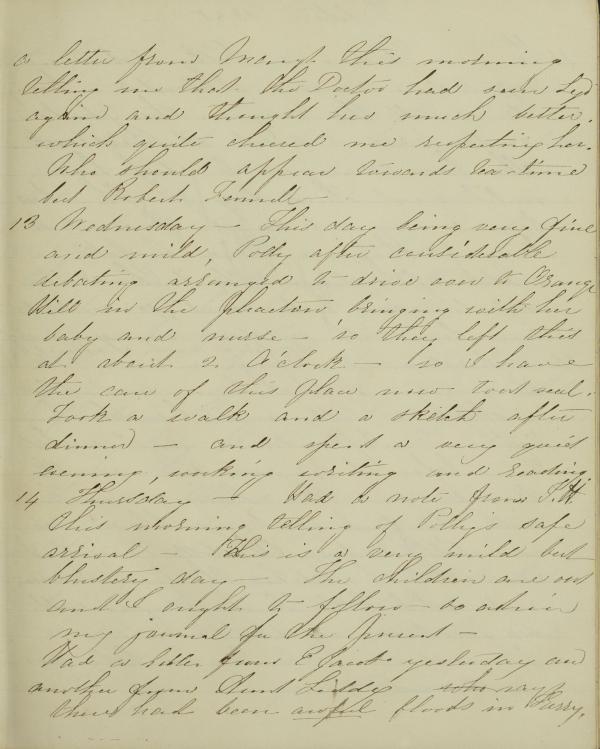 a letter from Mongt this morning
telling me that the Doctor had seen Lyd
again and thought her much better.
which quite cheered me respecting her.
Who should appear towards tea-time
but Robert Fennell
13 Wednesday — This day being very fine
and mild, Polly after considerable
debating arranged to drive over to Orange
Hill in the phaeton bringing with her
baby and nurse — so they left this
at about 2 O'clock — so I have
the care of this place now tout seul.
Took a walk and a sketch after
dinner — and spent a very quiet
evening, working writing and reading.
14 Thursday — Had a note from T.H.
this morning telling of Polly's safe
arrival — This is a very mild but
blustery day — The children are out
and I ought to follow — so adieu
my journal for the present —
Had a letter from E Jacob yesterday and
another from Aunt Liddy who says
there had been awful floods in Parry.